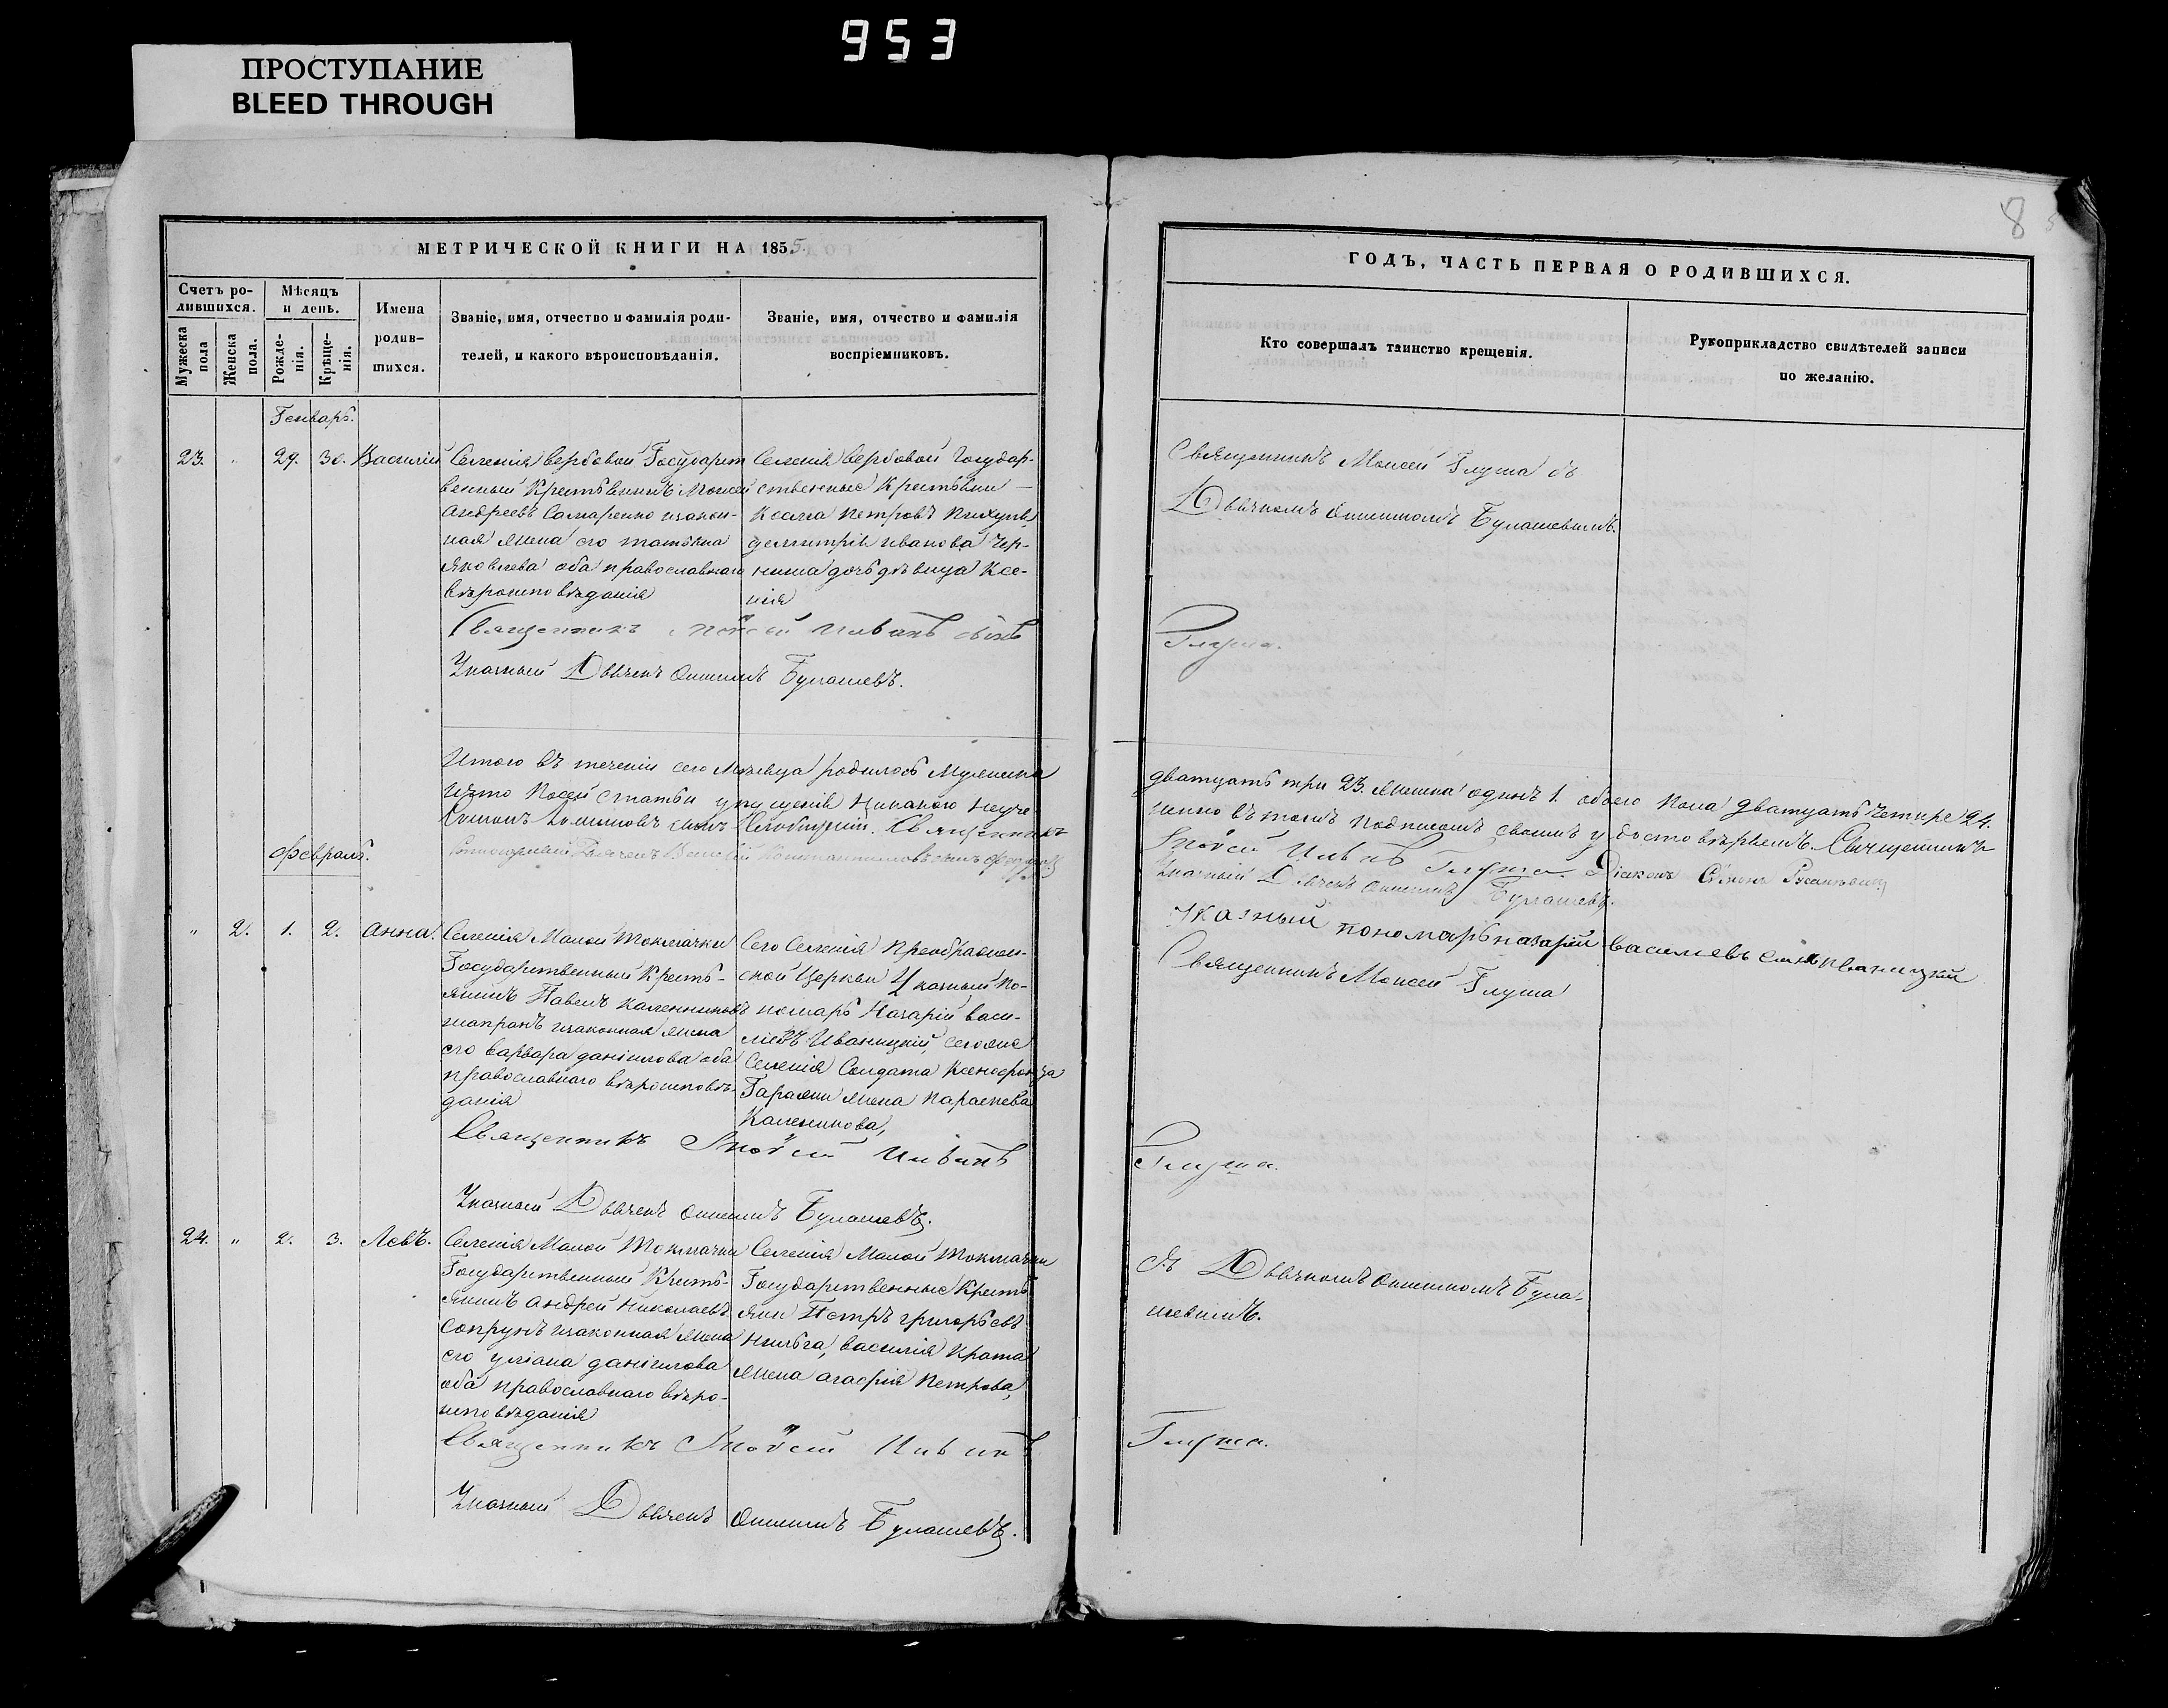 953
ПРОСТУПАНИЕ
BLEED THROUGH
8
МЕТРИЧЕСКОЙ КНИГИ НА 1855.
Счетъ ро-
дившихся.
Мужеска пола
Женска пола.
Мѣсяцъ
и день.
Рожде-
нія.
Крѣще-
нія.
Имена
родив-
шихся.
Званіе, имя, отчество и фамилія роди-
телей, и какого вѣроисповѣданія.
Званіе, имя, отчество и фамилія
воспріемниковъ.
Генварь.
23. 29. 30. Василій
Селенія Вербовой Государст
венный Крестьянинъ Моисей
Андреевъ Самаренко изакон-
ная жена его татьяна
Яковлева оба православнаго
вѣроисповѣданія
Селенія Вербовой Государ-
ственные Крестьяни
Косма Петровъ
демитрія иванова Чер-
ниша дочь дѣвица Ксе-
нія
Священникъ Моѵсей
Указный Дьячекъ Онисимъ Булашевъ.
Итого въ теченіи сего Месяца родилось Мужеска
Что Посей статьи упущенія Никакого
Священникъ
Февраль.
" 2. 1. 2. Анна.
Селенія Малой Токмачки
Государственный Кресть-
янинъ Павелъ Калениковъ
шапранъ изаконная жена
его варвара даніилова оба
православнаго вѣроисповѣ-
данія
Сего Селенія Преображен-
ской Церкви Указный По-
номарь Назарій васи-
лієвъ Иваницкій, сегоже
Селенія Солдата Ксенофонта
жена параскева
Каленикова,
Священникъ Моѵсей
Указный Дьячекъ Онисимъ Булашевъ.
24. " 2. 3. Левъ.
Селенія Малой Токмачки
Государственный Кресть-
янинъ Андрей Николаевъ
Сопрунъ изаконная жена
его уліана даніилова
оба православнаго вѣро-
исповѣданія
Селенія Малой Токмачки
Государственные Кресть
яни Петръ григорьевъ
василія Крота
жена агафія Петрова,
Священникъ Моѵсей
Указный Дьячекъ Онисимъ Булашевъ.
ГОДЪ, ЧАСТЬ ПЕРВАЯ О РОДИВШИХСЯ.
Кто совершалъ таинство крещенія.
Рукоприкладство свидѣтелей записи
по желанію.
Священникъ Моисей Глуша съ
Дьячкомъ Онисимомъ Булашевимъ.
Глуша.
дватцать три 23. Женска одинъ 1. обоего Пола дватцать четыре 24.
нено въ томъ подписомъ своимъ удостовѣряемъ. Священникъ
Моѵсей Глуша. Діаконъ
Указный Дьячекъ Онисимъ Булашевъ.
Указный пономарь назарій василіевъ сынъ иваницкій
Священникъ Моисей Глуша
Глуша.
съ Дьячкомъ Онисимомъ Була-
шевимъ.
Глуша.